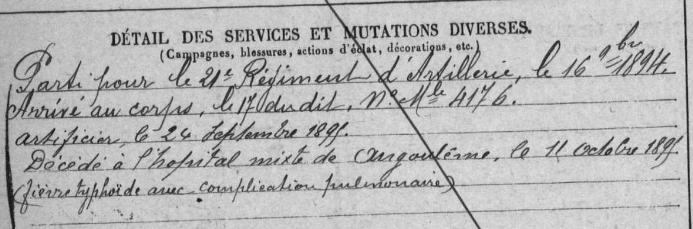 DÉTAIL DES SERVICES ET MUTATIONS DIVERSES.
(Campagnes, blessures, actions d'éclat, décorations, etc.)
Parti pour le 21e Régiment d'Artillerie, le 16 9bre 1894.
Arrivé au corps, le 17 du dit, No Mle 4176.
artificier, le 24 Septembre 1895.
Décédé à l'hopital mixte de Angoulême, le 11 Octobre 1895
(fièvre typhoïde avec complication pulmonaire)